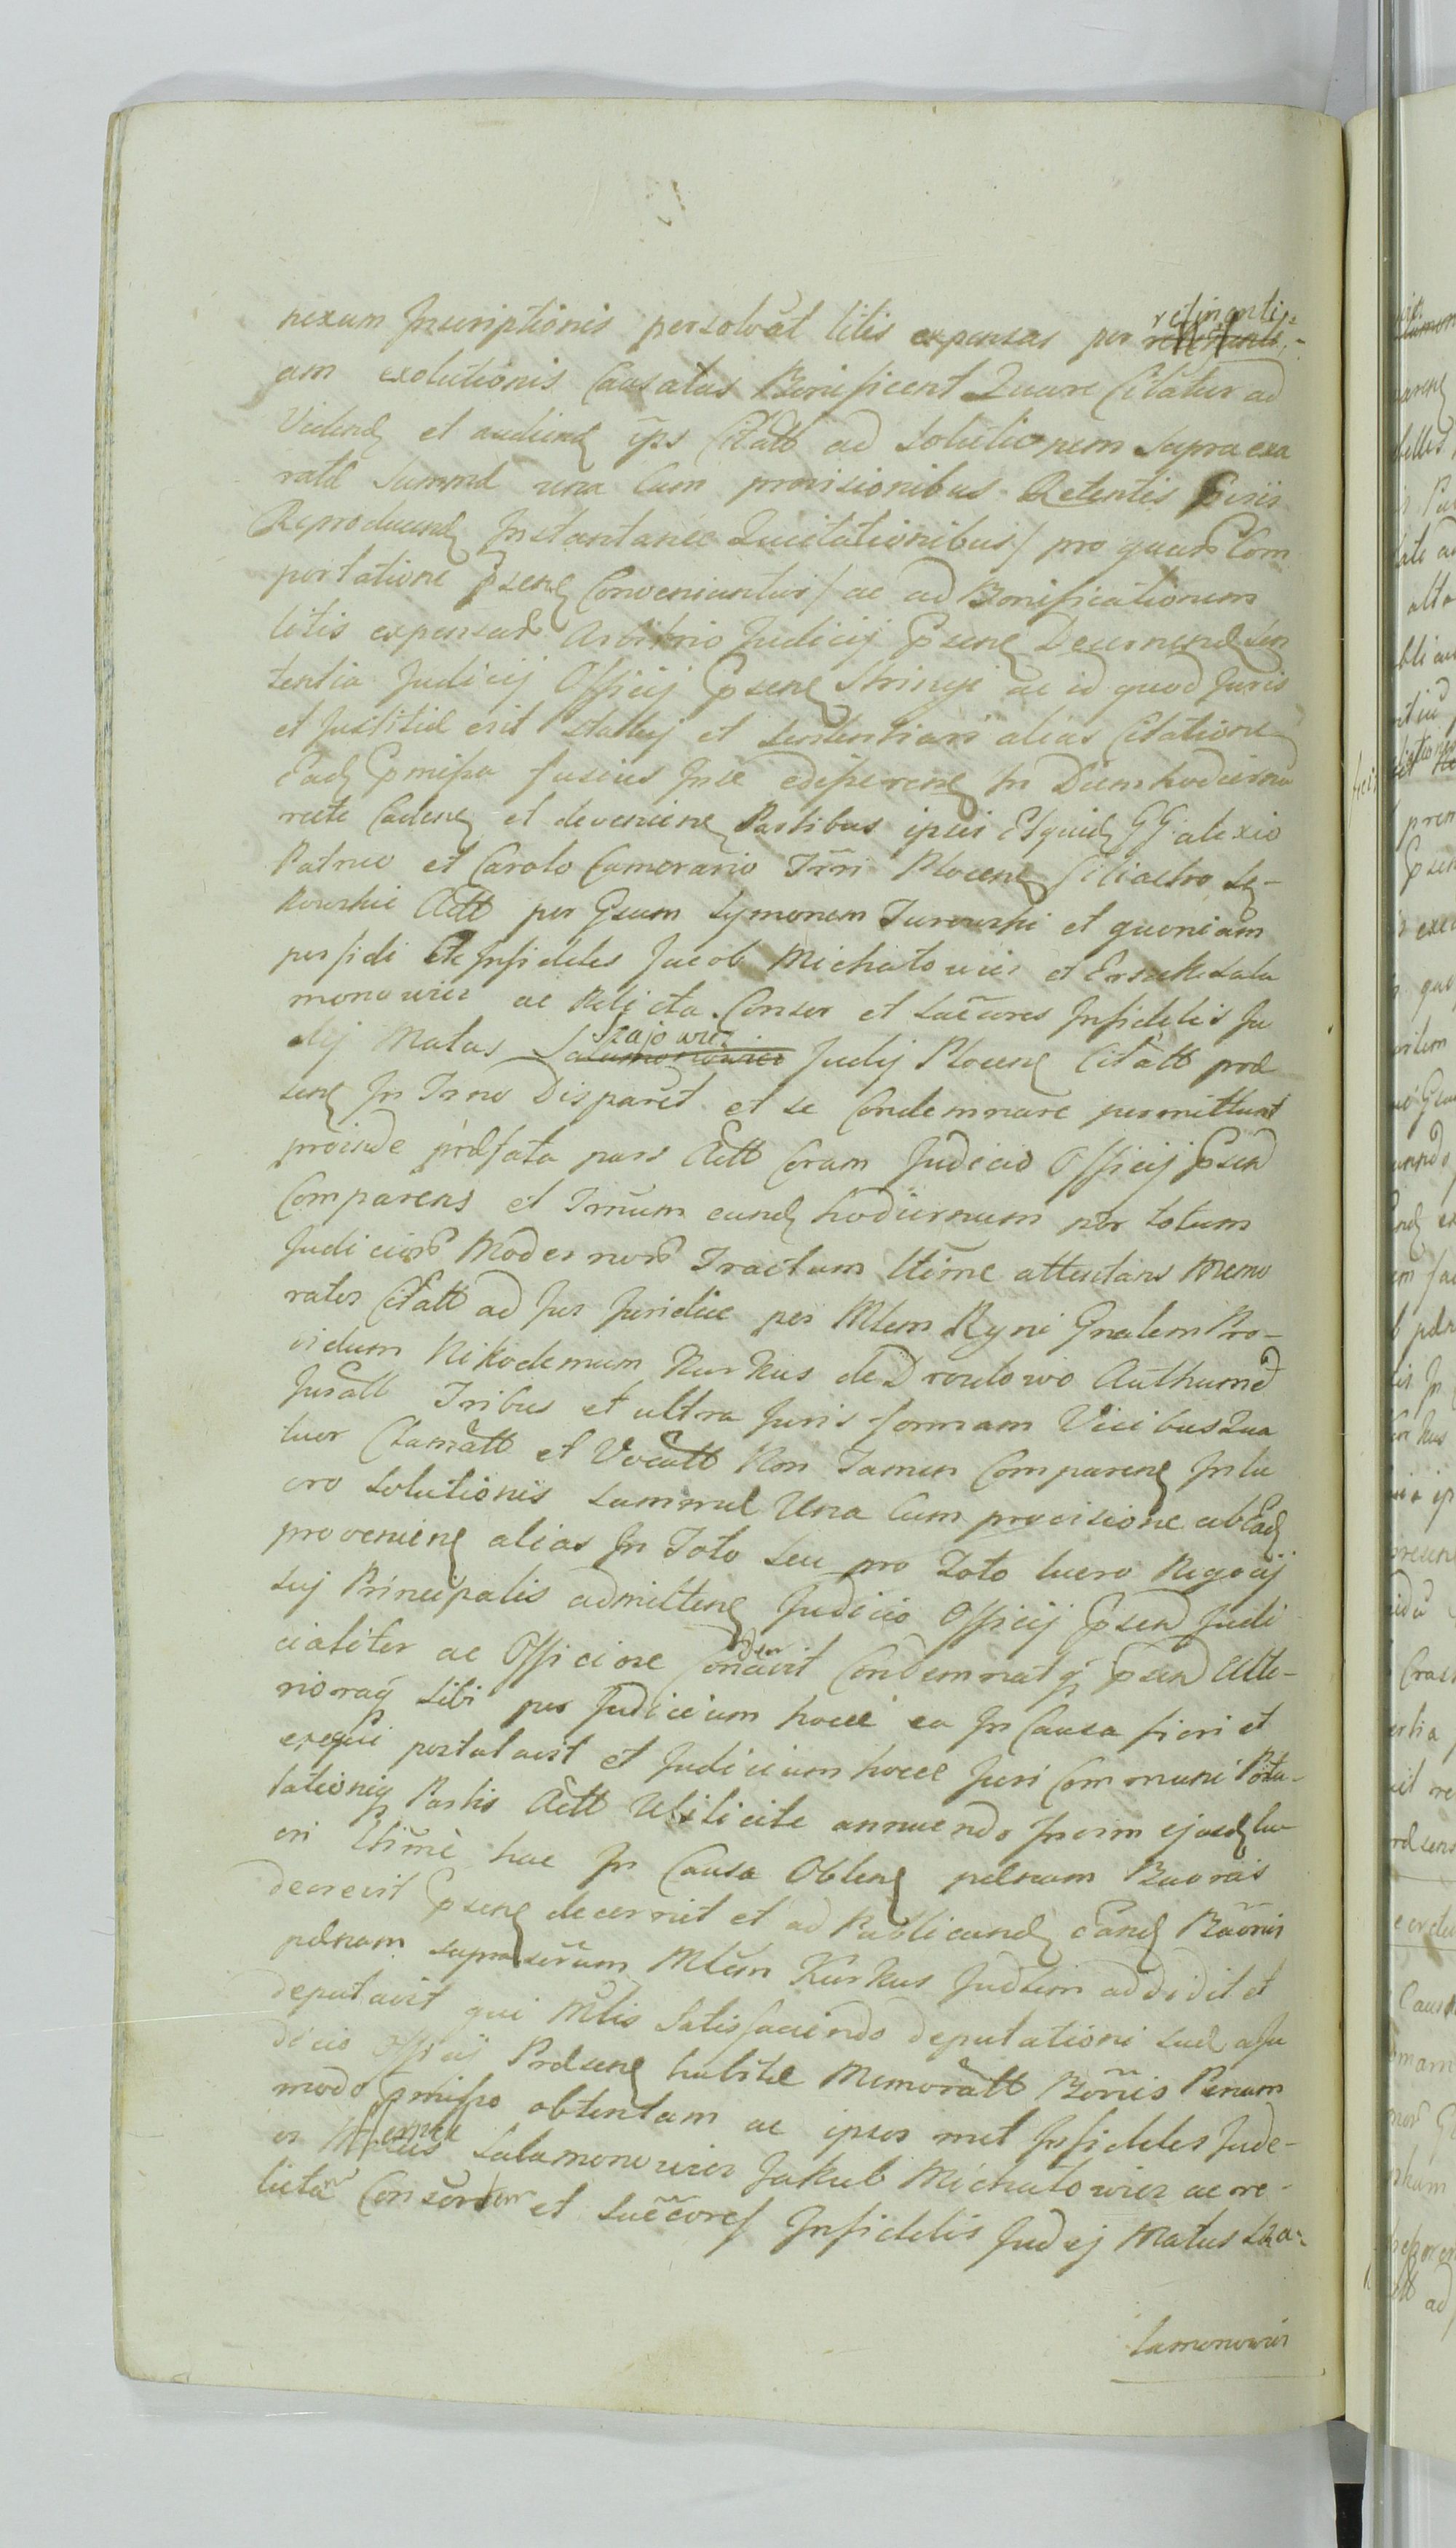 nexum Inscriptionis persolvãt litis expensas per retinenti-
am exolutionis Causatas Bonificent Quare Citatur ad
Videnđ et audienđ ips Citãtt ad solutionem supra exa
ratæ Summæ una Cum provisionibus Retentis
Reproducenđ Instantanee Quietationibus/ pro quarũ Com
portatione pseng Conveniantur/ ac ad Bonificationem
litis expensarũ Arbitrio Judicij Pseng Decernend sen
tentia Judicij Officij Pseng Stringi ac id quod Juris
et Justitiæ erit Statui et sententiari alias Citatione
Eadg Pmissa fusius In se edissereng In Diem hodiernã
recte Cadeng et devenieng Partibus ipsis Etquidg GG alexio
Patruo et Carolo Camerario Trri Ploceng filiastro Sę-
kowskie Actt per Gsum Symonem Turowski et quoniam
perfidi et Infideles Jacob Michałowicz et Erszek Sala
monowicz ac Relicta Consor et Succores Infidelis Ju
dej Matus Szajowicz Judej Ploceng Citãtt præ
seng In Trno Disparẽt et se Condemnare permittunt
proinde præfata pars Actt Coram Judicio Officij Psend
Comparens et Trnum eundg hodiernum per totum
Judiciorũ Modernorũ Tractum ltime attentans Memo
ratos Citãtt ad Jus Juridice per Mlem Rgni Gnalem Pro-
vidum Nikodemum Kurkus de Drozdowo Authum &
Jurãtt Tribus et ultra Juris formam Vicibus Qua
tuor Clamãtt et Vocãtt Non Tamen Compareng In lu
cro Solutionis Summæ Una Cum provisione ab Eadg
provenieng alias In Toto seu pro Toto lucro Negocij
sui Principalis admitteng Judicio Officij Psend Judi
cialiter ac Officiose Condemnavit Condemnatq Psend Ulte-
rioraq sibi per Judicium hocce ea In Causa fieri et
exequi postulavit et Judicium hocce Juri Communi Pstu-
lationiq Partis Actt Utilicite annuendo In vim ejusdg lu-
cri ltime hac In Causa Obteng pænam Banõnis
decrevit Pseng decernit et ad Publicandg eandg Bãonis
pænam suprascrũm Mlem Kurkus Judseum addidit et
deputavit qui Mlis Satisfaciendo deputationi suæ a Ju
dicio Officij Præseng habitæ Memorãtt Bõnis Pænam
modo Pmisso obtentam ac ipsos met Infideles Jude-
os Salamonowicz Jakub Michałowicz ac re-
lictam Consõrtem et Succores Infidelis Judej Matus Sza-
lamonowicz